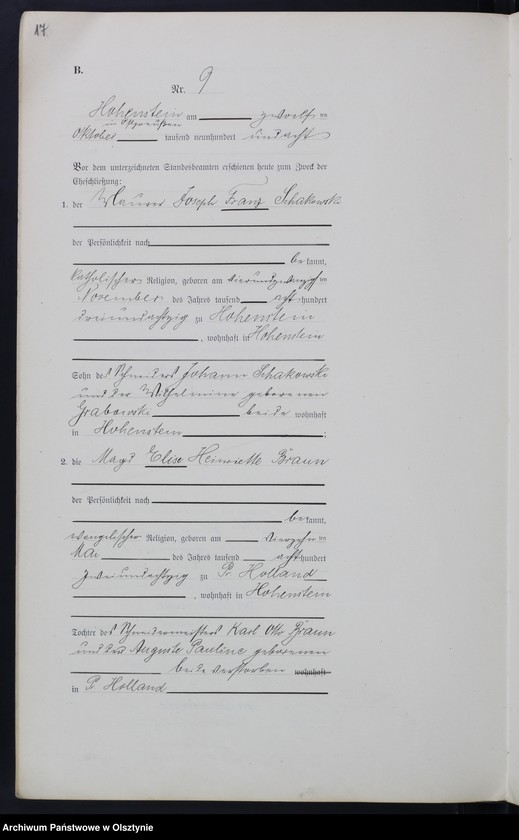 17
B.
Nr. 9
Hohenstein am zwölf ten
in Ostpreußen
Oktober tausend neunhundert und acht
Vor dem unterzeichneten Standesbeamten erschienen heute zum Zweck der
Eheschließung:
1. der Maurer Joseph Franz Schakowski
der Persönlichkeit nach
be kannt,
katholischer Religion, geboren am vierundzwanzigsten
November des Jahres tausend acht hundert
dreiundachtzig zu Hohenstein
, wohnhaft in Hohenstein
Sohn des Schneiders Johann Schakowski
und der Wilhelmine geborenen
Grabowski beide wohnhaft
in Hohenstein ;
2. die Magd Elise Henriette Braun
der Persönlichkeit nach
be kannt,
evangelischer Religion, geboren am vierzehn ten
Mai des Jahres tausend acht hundert
zweiundachtzig zu Pr. Holland
, wohnhaft in Hohenstein
Tochter des Schneidermeisters Karl Otto Braun
und der Auguste Pauline geborenen
beide verstorben wohnhaft
in Pr. Holland
Archiwum Państwowe w Olsztynie